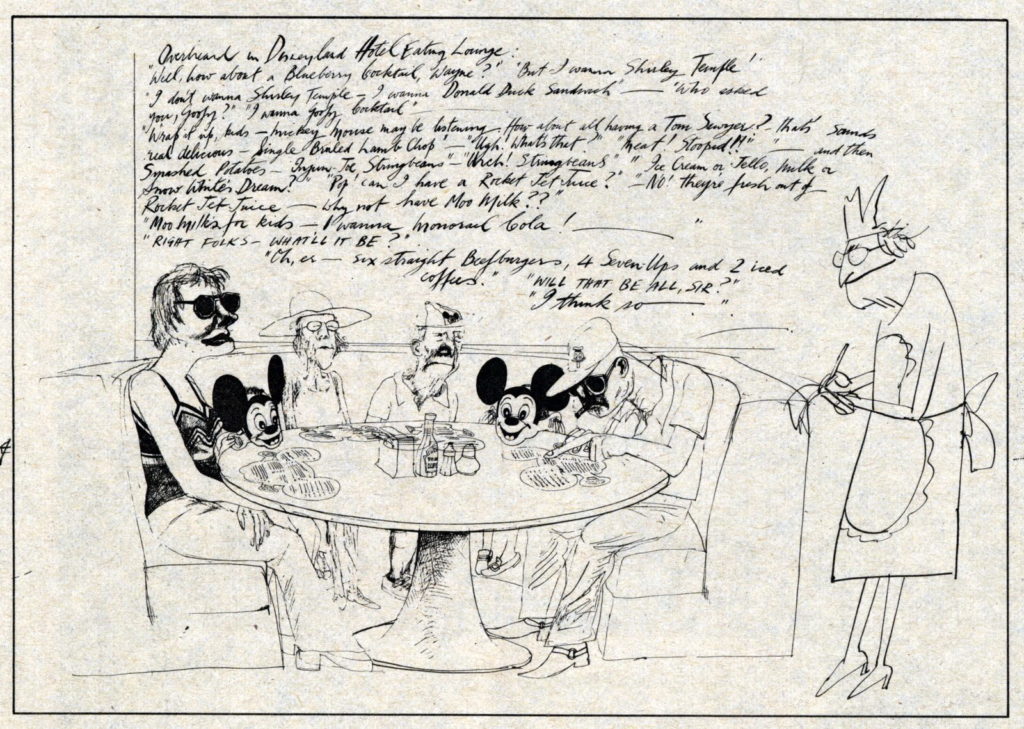 Overheard in Disneyland Hotel Eating Lounge:
"Well, how about a Blueberry Cocktail, Wayne?" "But I wanna Shirley Temple!"
"I don't wanna Shirley Temple – I wanna Donald Duck Sandwich — "Who asked
you, Goofy?" "I wanna Goofy Cocktail"
"Wrap it up, kids – Mickey Mouse may be listening – How about all having a Tom Sawyer? – that's sounds
real delicious – Single Broiled Lamb Chop' – "Ugh! What's that?" "Meat! Stoopid!!" "— and then
Smashed Potatoes – Injun Joe, Stringbeans – "Urch! Stringbeans" "Ice Cream or Jello, Milk or
Snow White's Dream?" "Pop' can I have a Rocket Jet Juice?" "– NO! they're fresh out of
Rocket Jet Juice — Why not have Moo Milk??"
"Moo Milk's for kids – I wanna Monorail Cola! ———"
"RIGHT FOLKS – WHAT'LL IT BE?"
"Oh, er — six straight Beefburgers, 4 Seven Ups and 2 iced
coffees." "WILL THAT BE ALL, SIR?"
"I think so ——— "